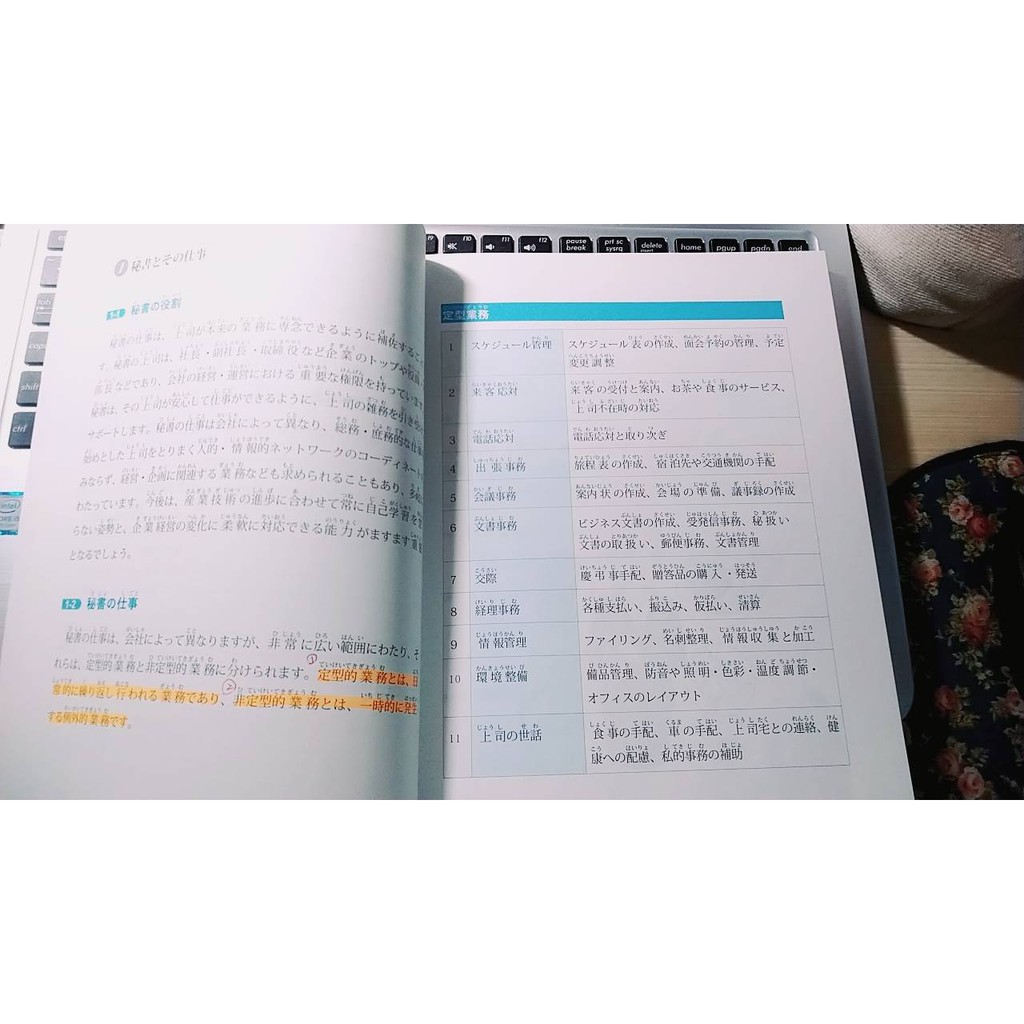 1 秘書とその仕事
1-1 秘書の役割
秘書の仕事は、上司が本来の業務に専念できるように補佐すること
す。秘書の上司は、社長・副社長・取締役など企業のトップや役員、
部長などであり、会社の経営・運営における重要な権限を持っています
秘書は、その上司が安心して仕事ができるように、上司の雑務を引き
サポートします。秘書の仕事は会社によって異なり、総務・庶務的な仕
始めとした上司をとりまく人的・情報的ネットワークのコーディネート
みならず、経営・企画に関連する業務なども求められることもあり、多岐
わたっています。今後は、産業技術の進歩に合わせて常に自己学習を
らない姿勢と、企業経営の変化に柔軟に対応できる能力がますます重
となるでしょう。
1-2 秘書の仕事
秘書の仕事は、会社によって異なりますが、非常に広い範囲にわたり、そ
れらは、定型的業務と非定型的業務に分けられます。①定型的業務とは、日
常的に繰り返し行われる業務であり、②非定型的業務とは、一時的に発生
する例外的業務です。
定型業務
1 スケジュール管理 スケジュール表の作成、面会予約の管理、予定
変更調整
2 来客応対 来客の受付と案内、お茶や食事のサービス、
上司不在時の対応
3 電話応対 電話応対と取り次ぎ
4 出張事務 旅程表の作成、宿泊先や交通機関の手配
5 会議事務 案内状の作成、会場の準備、議事録の作成
6 文書事務 ビジネス文書の作成、受発信事務、秘扱い
文書の取扱い、郵便事務、文書管理
7 交際 慶弔事手配、贈答品の購入・発送
8 経理事務 各種支払い、振込み、仮払い、清算
9 情報管理 ファイリング、名刺整理、情報収集と加工
10 環境整備 備品管理、防音や照明・色彩・温度調節・
オフィスのレイアウト
11 上司の世話 食事の手配、車の手配、上司宅との連絡、健
康への配慮、私的事務の補助
F10
F11
F12
pause
break
prt sc
sysrq
delete
home
pgup
pgdn
end
shift
ctrl
intel